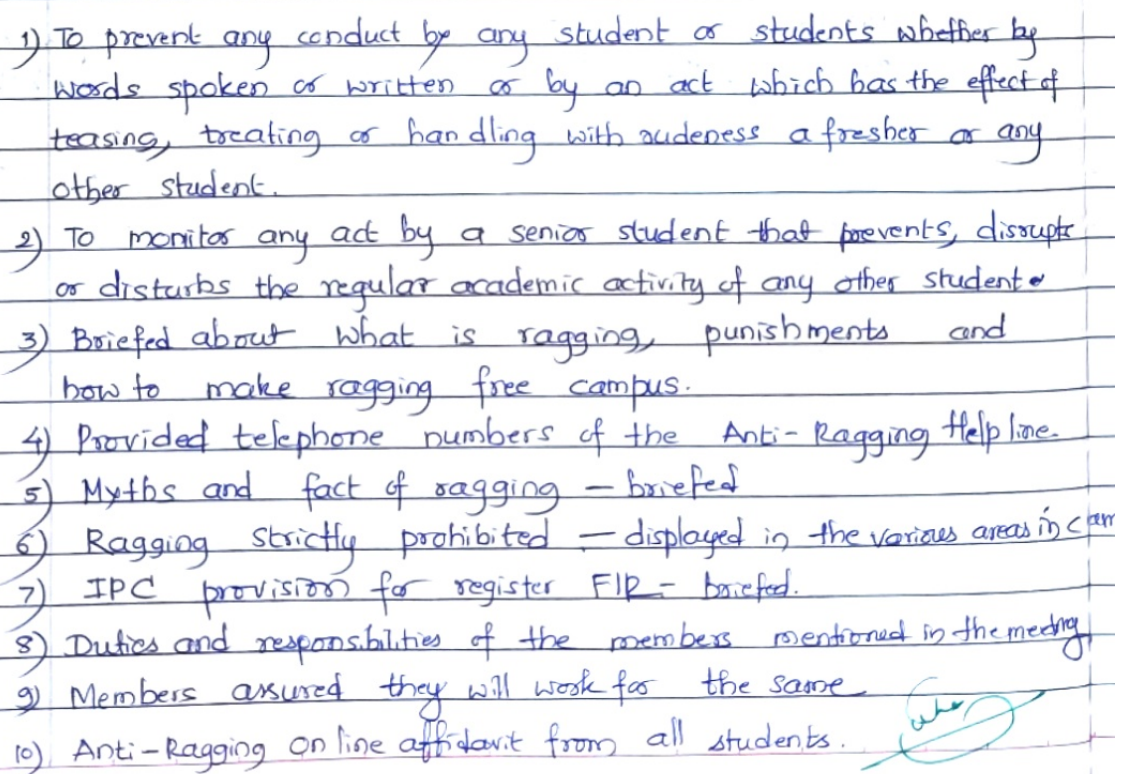 1) To prevent any conduct by any student or students whether by
words spoken or written or by an act which has the effect of
teasing, treating or handling with rudeness a fresher or any
other student.
2) To monitor any act by a senior student that prevents, disrupts
or disturbs the regular academic activity of any other student.
3) Briefed about what is ragging, punishments and
how to make ragging free campus.
4) Provided telephone numbers of the Anti-Ragging Help line.
5) Myths and fact of ragging - briefed
6) Ragging strictly prohibited - displayed in the various areas in cam
7) IPC provision for register FIR - briefed.
8) Duties and responsibilities of the members mentioned in the meeting
9) Members assured they will work for the same
10) Anti-Ragging online affidavit from all students.